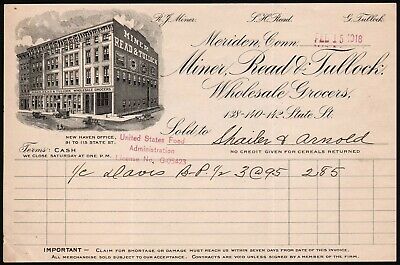 R. J. Miner. S. H. Read. G. Tullock.
Meriden, Conn. FEB 15 1918
MINER,
READ & TULLOCK
Miner, Read & Tullock,
Wholesale Grocers,
138-140-142 State St.
NEW HAVEN OFFICE,
91 TO 113 STATE ST.
United States Food
Administration
License No. G-05423
Sold to Shailer & Arnold
NO CREDIT GIVEN FOR CEREALS RETURNED
Terms: CASH
WE CLOSE SATURDAY AT ONE P.M.
1/c Davis B.P. 1/2 3 @ 95 2 85
IMPORTANT – CLAIM FOR SHORTAGE OR DAMAGE MUST REACH US WITHIN SEVEN DAYS FROM DATE OF THIS INVOICE.
ALL MERCHANDISE SOLD SUBJECT TO OUR ACCEPTANCE. CONTRACTS ARE VOID UNLESS SIGNED BY A MEMBER OF THE FIRM.